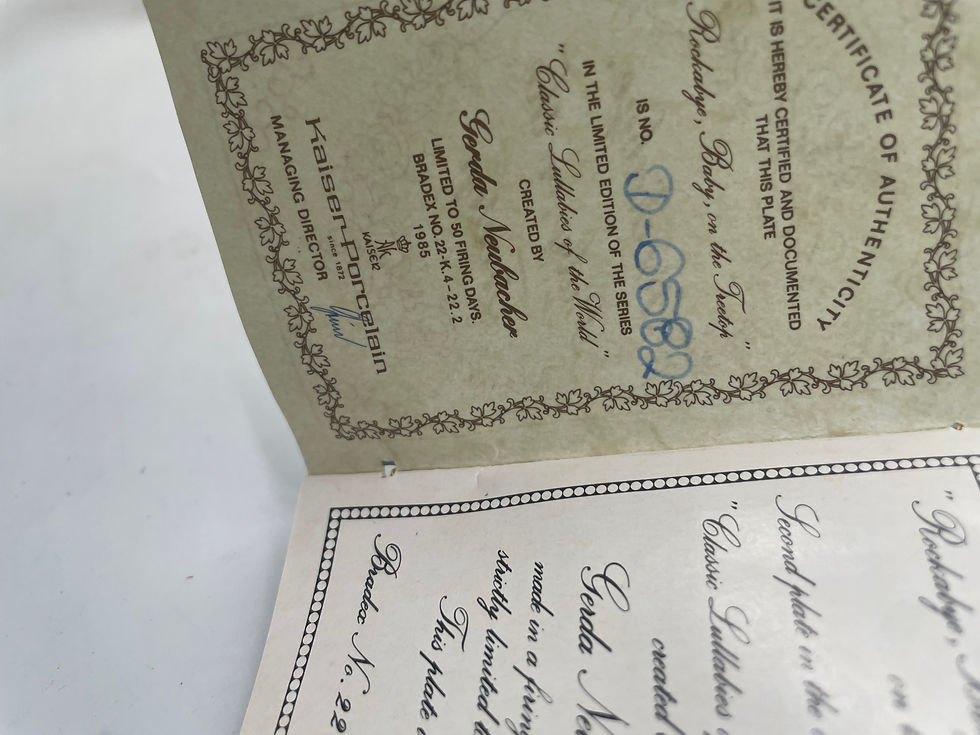 CERTIFICATE OF AUTHENTICITY
IT IS HEREBY CERTIFIED AND DOCUMENTED
THAT THIS PLATE
Rockabye, Baby, on the Treetop"
IS NO. D-6582
IN THE LIMITED EDITION OF THE SERIES
"Classic Lullabies of the World"
CREATED BY
Gerda Neubacher
LIMITED TO 50 FIRING DAYS.
BRADEX NO. 22-K.4-22.2
1985
KAISER
Kaiser-Porcelain
since 1872
MANAGING DIRECTOR
"Rockabye,
on
Second plate in the
"Classic Lullabies
created
Gerda
made in a firing
strictly limited
This plate
Bradex No. 22